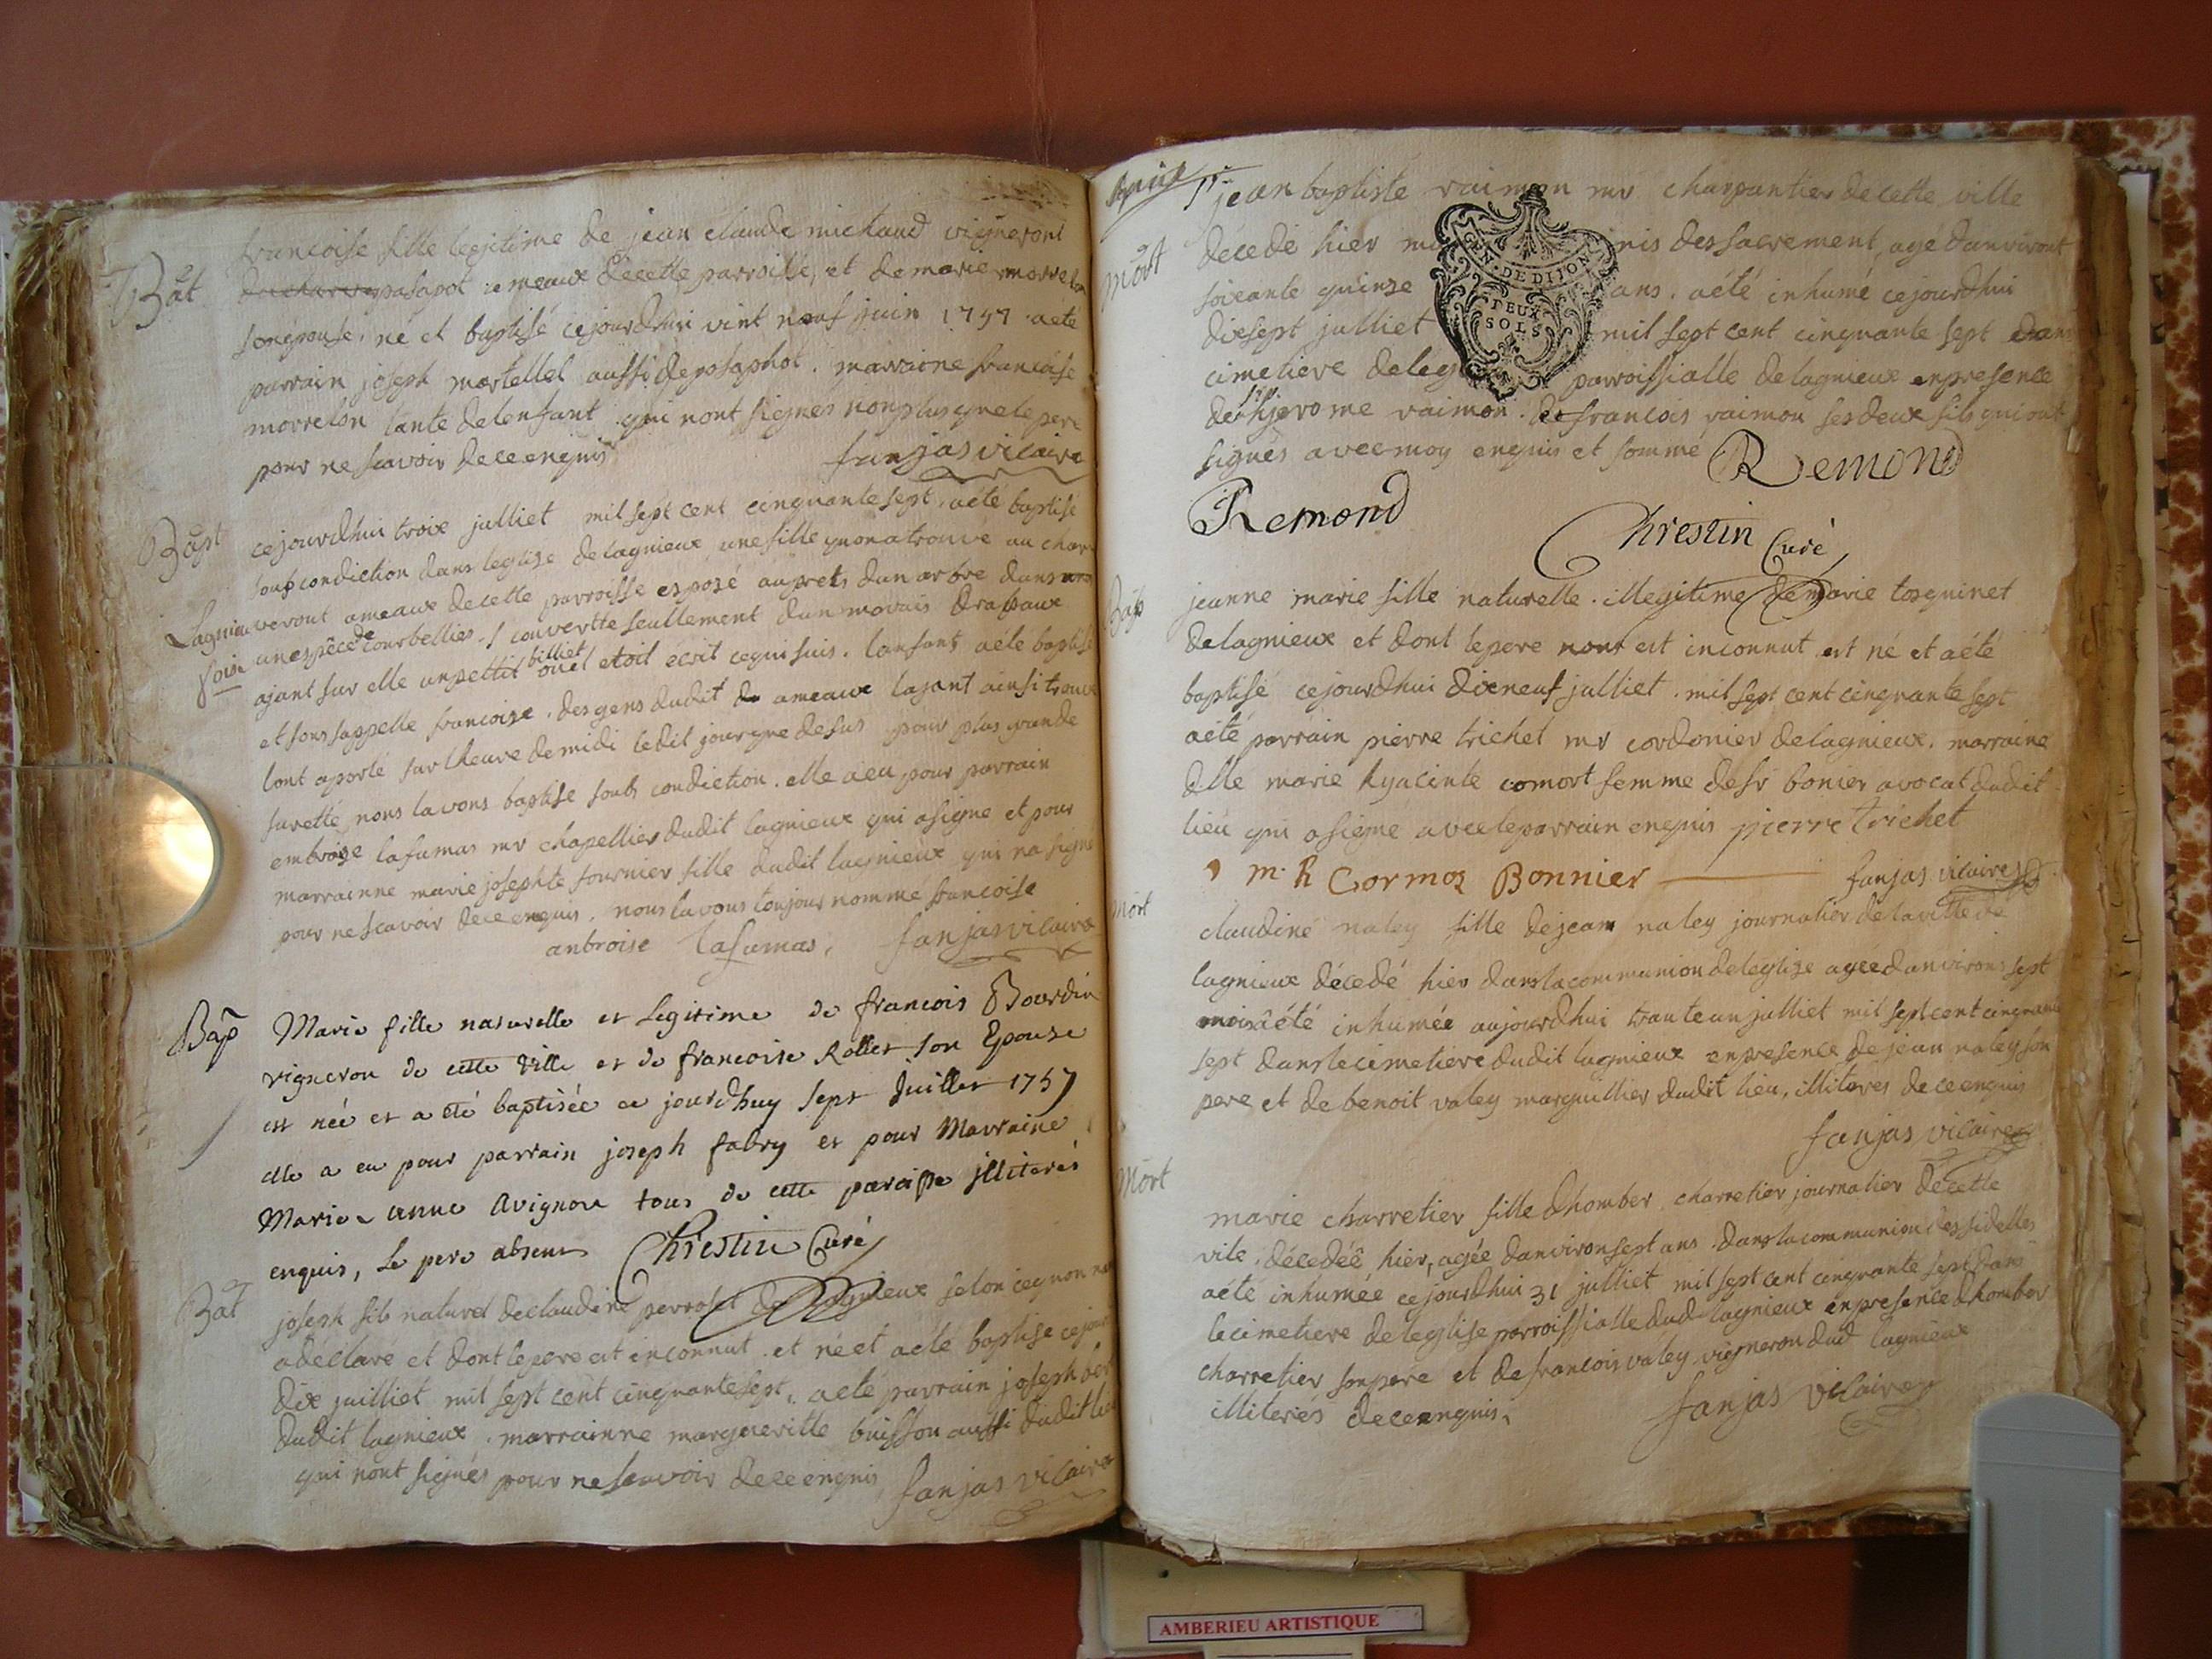 Bat
francoise fille legitime de jean claude michaud vigneront
pasapot ameaux decette parroisse, et de marie morrelon
son epouse, né et baptisé cejourdhui vint neuf juin 1757. aété
parrain joseph martellet aussi de posaphot. marraine francoise
morrelon tante delenfant qui nont signés nonplus que le pere
pour ne scavoir dece enquis
fanjas vicaire
Bapt
cejourdhui troix julliet mil sept cent cinquante sept, aété baptisé
soubs condiction dans leglise de lagnieux une fille quonatrouvé au
veront ameaux decette parroisse exposé auprets dun arbre dans
Lagnieu
foisi
un espéce de courbellies couvertte seullement dun movais drapaux
ajant sur elle un pettit billiet ouél etoit ecrit cequi suis. lanfant aété baptisé
et sous sappelle francoise. des gens dudit ameaux lajant ainsi trouvé
lont aporté sur lheure de midi ledit jour que desus pour plus grande
suretté, nous lavons baptise soubs condiction. elle a eu pour parrain
embroise lafumas mr chapellier dudit lagnieux qui asigne et pour
marrainne marie josephte fournier fille dudit lagnieux qui na signé
pour ne scavoir dece enquis. nous lavons toujour nommé francoise
anbroise lafumas, fanjas vicaire
Bap
Marie fille naturelle et legitime de francois Bourdin
vigneron de cette ville et de francoise Rollet son Epouse
est née et a été baptisée ce jourdhuy sept Juillet 1757
elle a eu pour parrain joseph fabry et pour Marraine
Marie anne Avignon tous de cette paroisse jlliterés
enquis, le pere absent Chrestin Curé
Bat
joseph fils naturel de claudine perroset de lagnieux selon cequon
adéclaré et dont le pere est inconnut. et né et aété baptise cejour
dix juilliet mil sept cent cinquante sept, aété parrain joseph
dudit lagnieux. marrainne margueritte buisson aussi dudit lieu
qui nont signés pour ne scavoir dece enquis fanjas vicaire
jean baptiste raimon mr charpantier de cette ville
mort
décedé hier nis des sacrement, agé danviront
soixante quinze ans. aété inhumé cejourdhui
dixsept julliet mil sept cent cinquante sept dans
cimetiere deleg parroissialle de lagnieux enpresence
de sr hjerome raimon. de francois raimon ses deux fils qui ont
signés avec moy enquis et sommé Remond
GEN. DE DIJON
DEUX
SOLS
Remond
Chrestin Curé
Bap
jeanne marie fille naturelle. illegitime de marie tosquinet
delagnieux et dont le pere nont est inconnut est né et aété
baptisé cejourdhui dixneuf julliet. mil sept cent cinquante sept
aété parrain pierre trichet mr cordonier delagnieux. marraine
dlle marie hyacinte comort femme de sr bonier avocat dudit
lieu qui a signe avec le parrain enquis pierre trichet
m. h Cormoz Bonnier fanjas vicaire
mort
claudine naley fille de jean naley journalier de la ville de
lagnieux décedé hier dans la communion deleglise agée danvirons sept
mois aété inhumée aujourdhui trante un julliet mil sept cent cinquante
sept dans le cimetiere dudit lagnieux enpresence de jean naley son
pere, et de benoit valey marguillier dudit lieu, illiterés dece enquis
fanjas vicaire
mort
marie charretier fille dhomber charretier journalier décette
vile, décedéé hier, agée danviron sept ans. dans la communion des fidelles
aété inhumée cejourdhui 31 julliet mil sept cent cinquante sept dans
le cimetiere deleglise parroissialle dud lagnieux enpresence dhomber
charretier son pere et de francois valey vigneron dud lagnieux
illiterés dece enquis, fanjas vicaire
AMBERIEU ARTISTIQUE